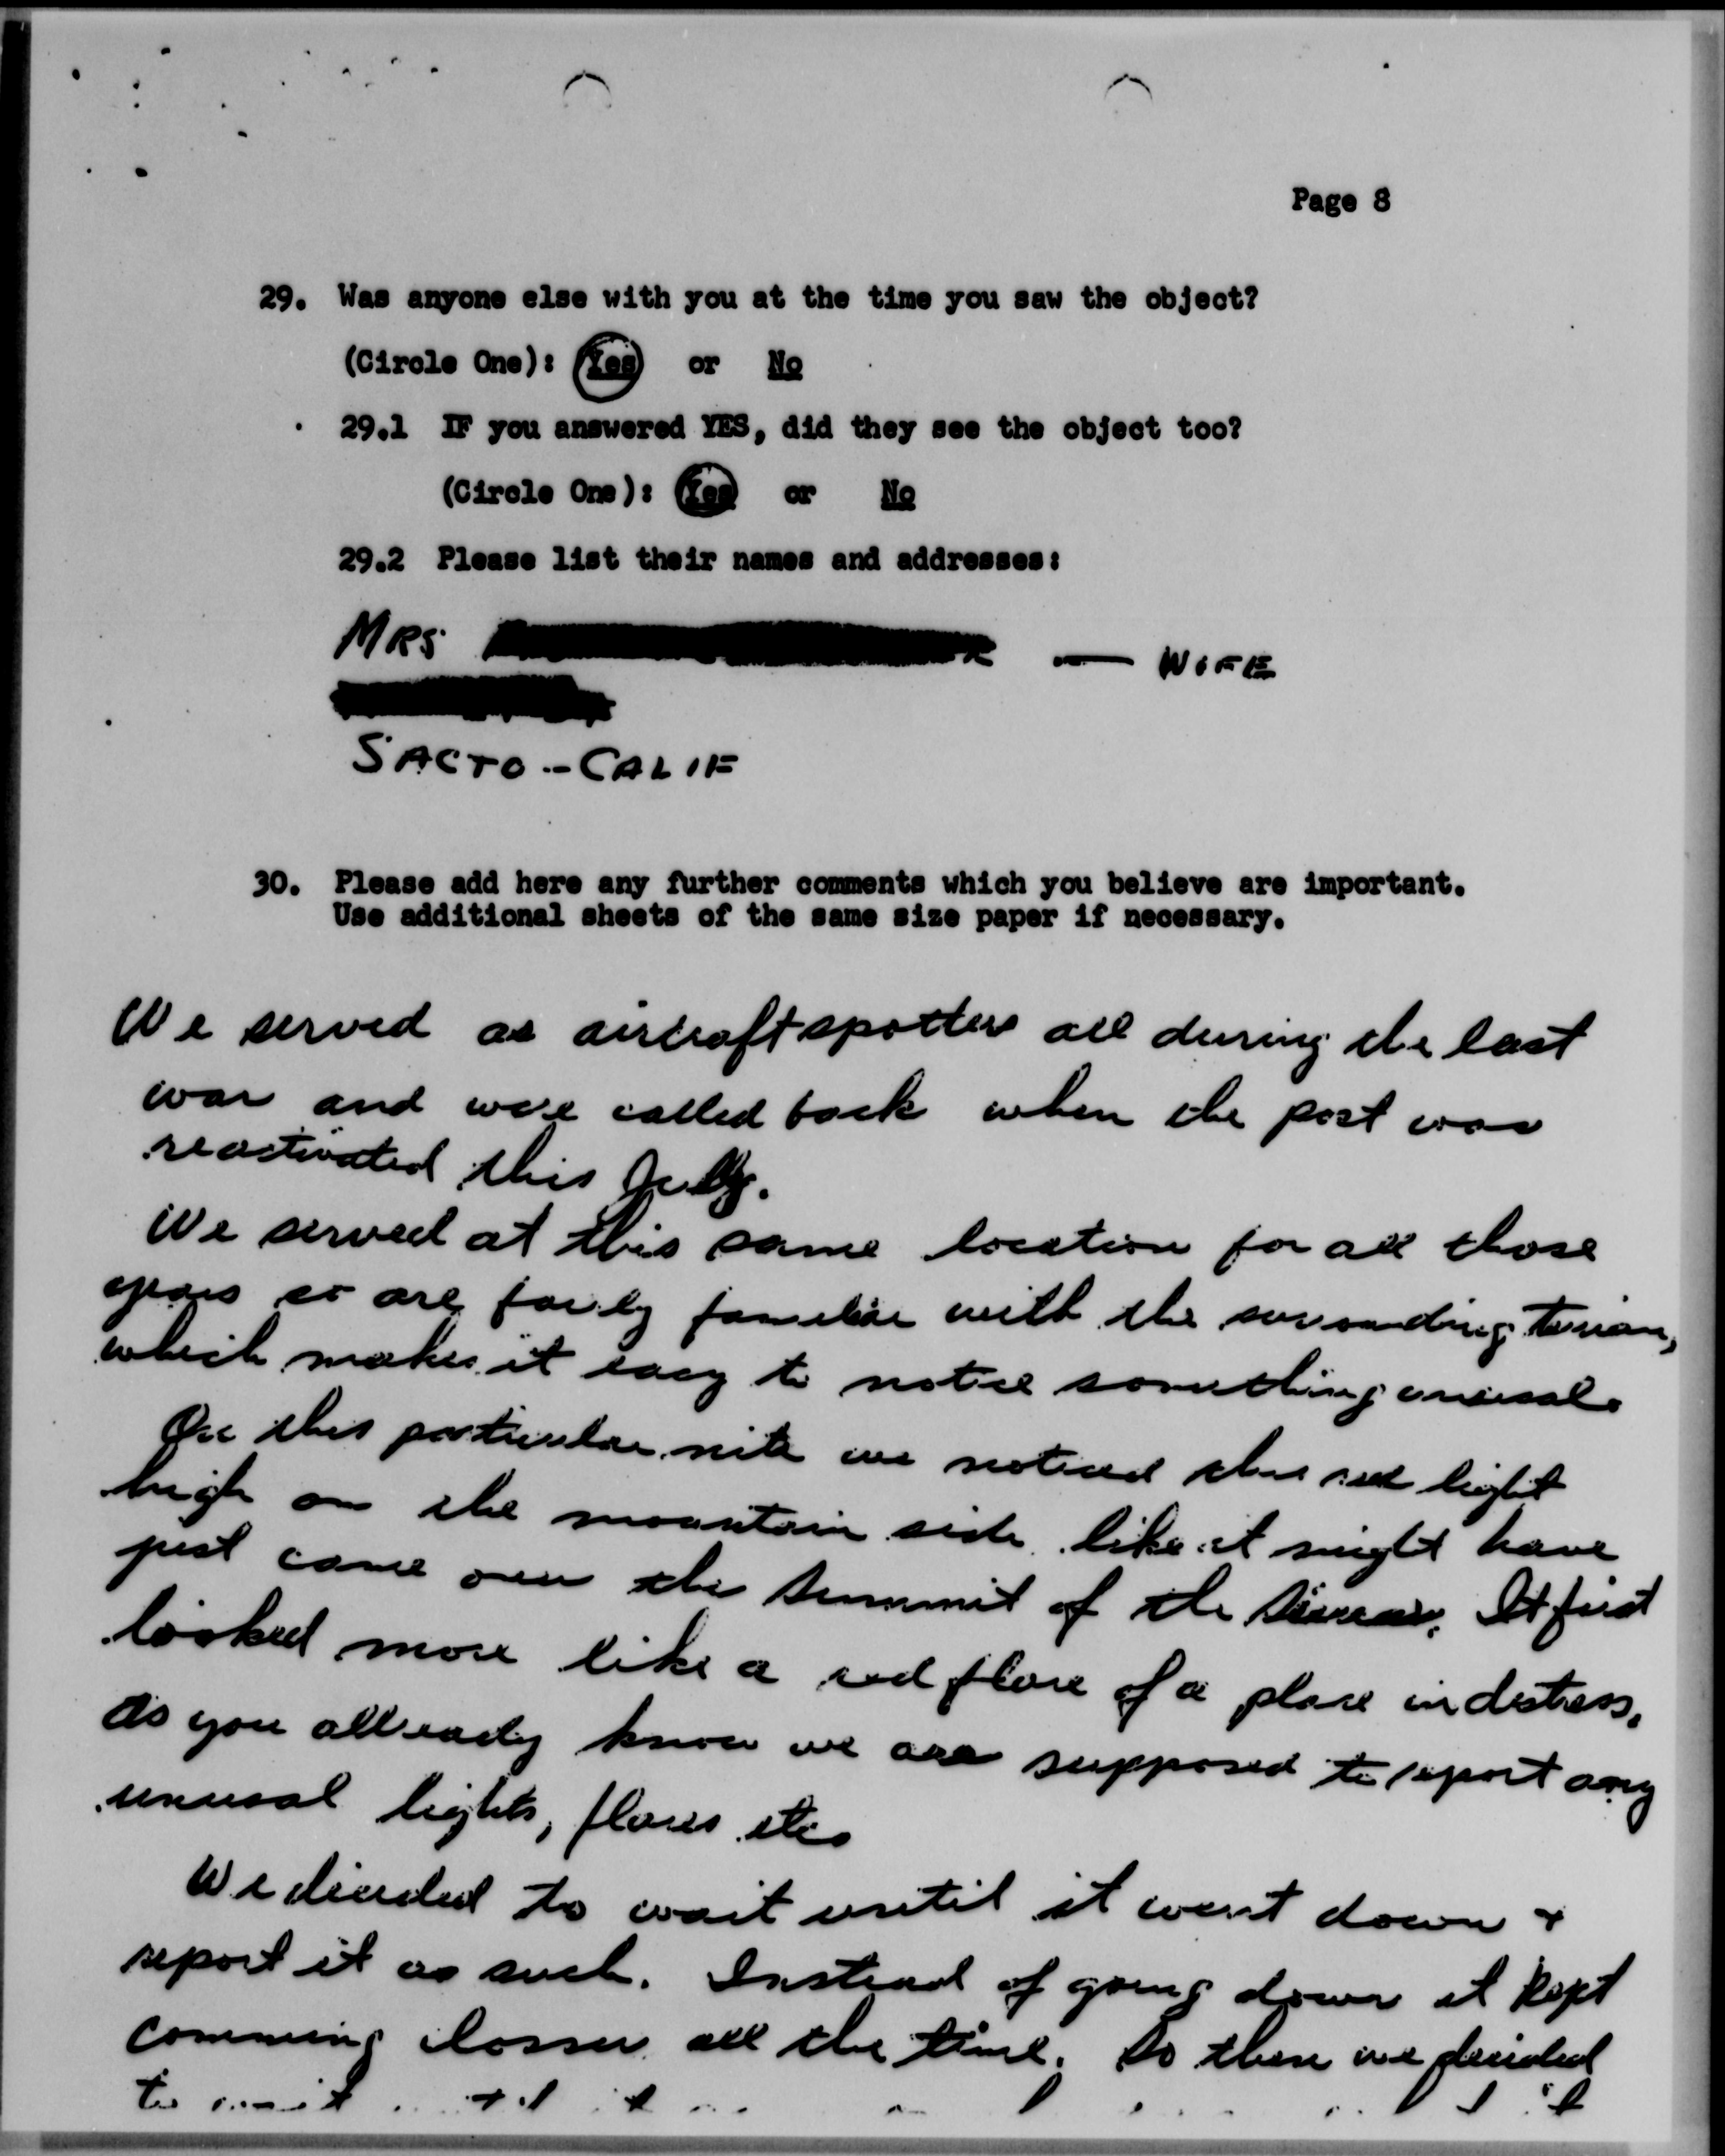 Page 8
29. Was anyone else with you at the time you saw the object?
(Circle One): Yes or No
29.1 IF you answered YES, did they see the object too?
(Circle One): Yes or No
29.2 Please list their names and addresses:
MRS — WIFE
SACTO -- CALIF
30. Please add here any further comments which you believe are important.
Use additional sheets of the same size paper if necessary.
We served as aircraft spotters all during the last
war and were called back when the post was
reactivated this July.
We served at this same location for all those
years so are fairly familiar with the
which makes it easy to notice something unusual.
On this particular nite we noticed this red light
high on the mountain side like it might have
just came over the summit of the It first
looked more like a red flare of a plane in distress.
As you allready know we are supposed to report any
unusual lights, flares etc.
We decided to wait until it went down +
report it as such. Instead of going down it kept
comming closser all the time. So then we decided
to wait until it